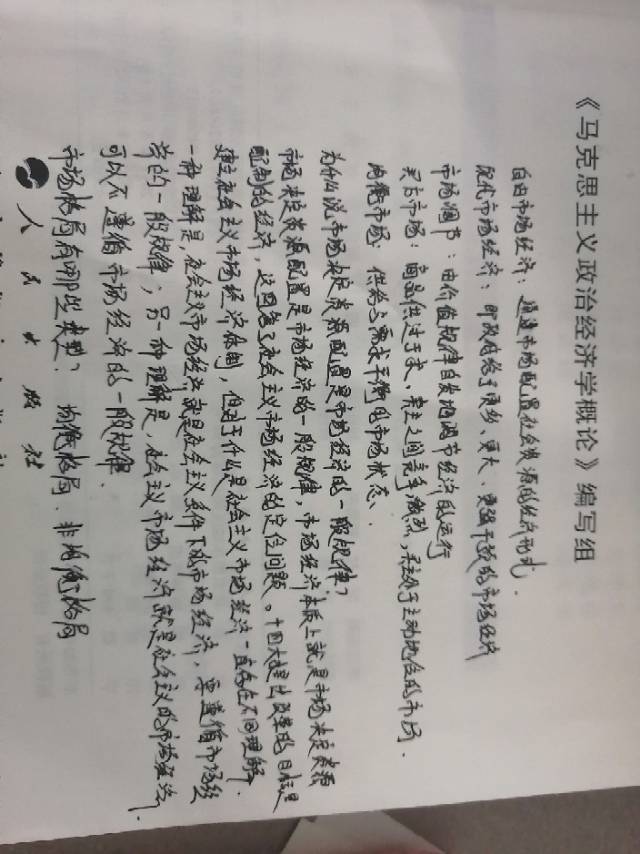 《马克思主义政治经济学概论》编写组
自由市场经济：通过市场配置社会资源的经济形式.
现代市场经济：即政府给予更多、更大、更强干预的市场经济
市场调节：由价值规律自发地调节经济的运行
买方市场：商品供过于求，卖主之间竞争激烈，买主处于主动地位的市场.
均衡市场：供给与需求平衡的市场状态、
为什么说市场决定资源配置是市场经济的一般规律？
市场决定资源配置是市场经济的一般规律，市场经济本质上就是市场决定资源
配制的经济，这因为社会主义市场经济的定位问题。十四大提出改革的目标是
建立社会主义市场经济体制，但对于什么是社会主义市场经济一直存在不同理解.
一种理解是，社会主义市场经济就是社会主义条件下的市场经济，要遵循市场经
济的一般规律；另一种理解是，社会主义市场经济就是社会主义的市场经济.
可以不遵循市场经济的一般规律.
市场格局有哪些类型？ 均衡格局、非均衡格局
人民出版社